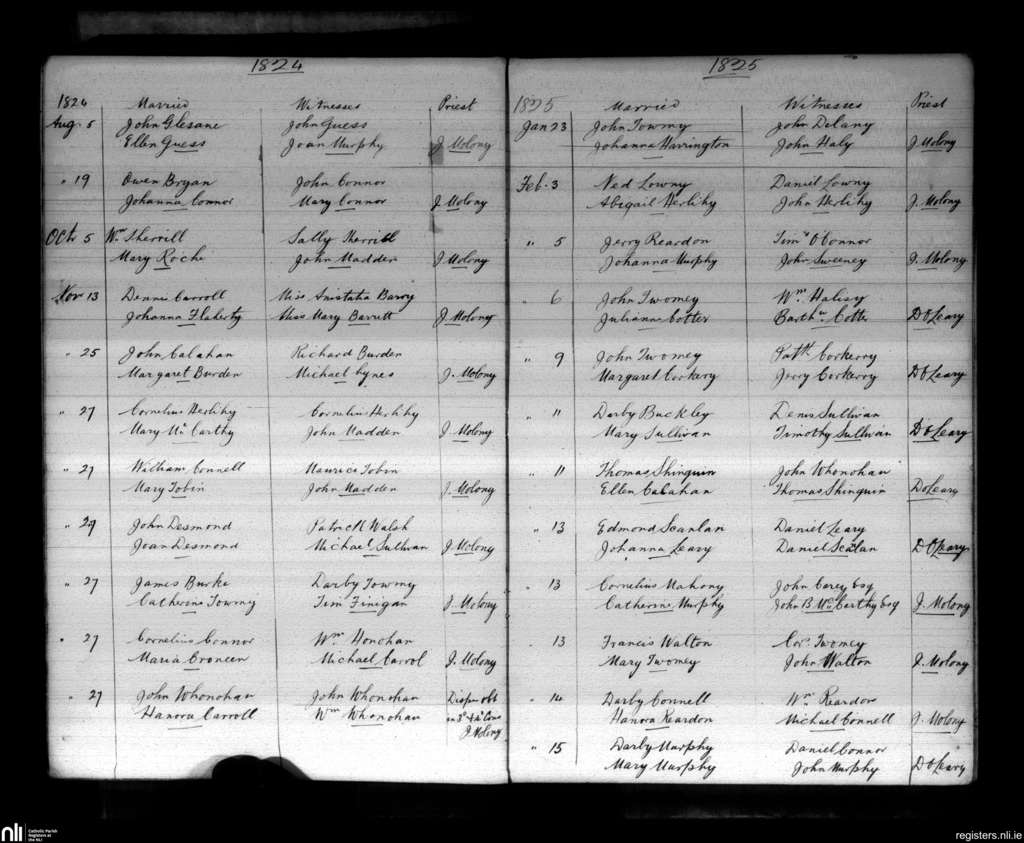 1824
1824 Married Witnesses Priest
Aug. 5 John Glesane John Guess
Ellen Guess Joan Murphy J. Molony
" 19 Owen Bryan John Connor
Johanna Connor Mary Connor J. Molony
Octr 5 Wm Sherrill Sally Sherrill
Mary Roche John Madden J. Molony
Nov 13 Dennis Carroll Miss Anistatia Barry
Johanna Flaherty Miss Mary Barrett J. Molony
" 25 John Calahan Richard Burden
Margaret Burden Michael Hynes J. Molony
" 27 Cornelius Herlihy Cornelius Herlihy
Mary McCarthy John Madden J. Molony
" 27 William Connell Maurice Tobin
Mary Tobin John Madden J. Molony
" 29 John Desmond Patrick Walsh
Joan Desmond Michael Sullivan J. Molony
" 27 James Burke Darby Towmy
Catherine Towmy Tim Finigan J. Molony
" 27 Cornelius Connor Wm Honohan
Maria Croneen Michael Carrol J. Molony
" 27 John Whonohan John Whonohan Dispn obt
Hanora Carroll Wm Whonohan in 3o & 4o Cons
J. Molony
1825
1825 Married Witnesses Priest
Jan 23 John Towmy John Delany
Johanna Harrington John Haly J. Molony
Feb. 3 Ned Lowny Daniel Lowny
Abigail Herlihy John Herlihy J. Molony
" 5 Jerry Reardon Timy O'Connor
Johanna Murphy John Sweeney J. Molony
" 6 John Twomey Wm. Halisy
Juliana Cotter Barthw Cotter D O'Leary
" 9 John Twomey Patk Corkerry
Margaret Corkery Jerry Corkerry D O'Leary
" 11 Darby Buckley Denis Sullivan
Mary Sullivan Timothy Sullivan D O'Leary
" 11 Thomas Shinguin John Whonohan
Ellen Calahan Thomas Shinguin D O'Leary
" 13 Edmond Scanlan Daniel Leary
Johanna Leary Daniel Scalan D O'Leary
" 13 Cornelius Mahony John Carey Esq
Catherine Murphy John B McCarthy Esq J. Molony
13 Francis Walton Cor. Twomey
Mary Twomey John Walton J. Molony
" 14 Darby Connell Wm. Reardon
Hanora Reardon Michael Connell J. Molony
" 15 Darby Murphy Daniel Connor
Mary Murphy John Murphy D O'Leary
nli Catholic Parish
Registers at
the NLI
registers.nli.ie